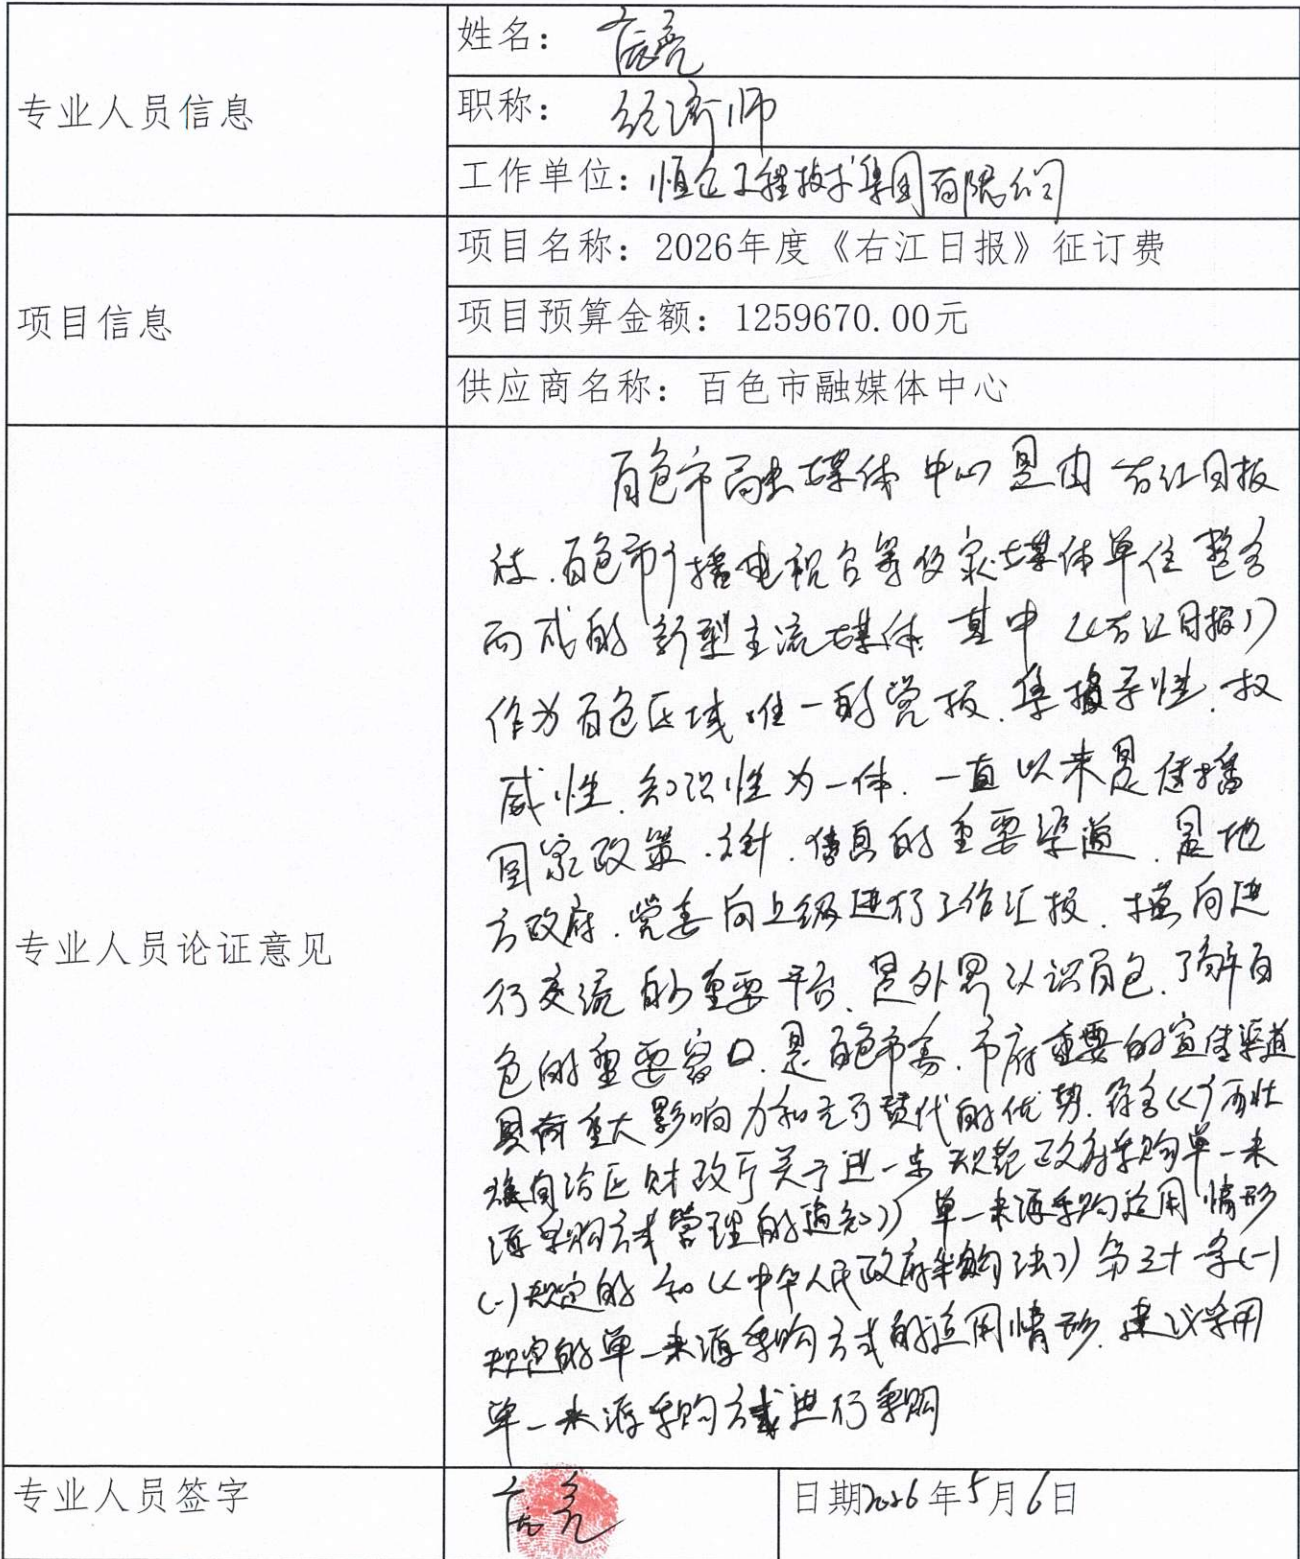 专业人员信息
姓名：
职称： 经济师
工作单位：恒立工程技术集团有限公司
项目信息
项目名称：2026年度《右江日报》征订费
项目预算金额：1259670.00元
供应商名称：百色市融媒体中心
专业人员论证意见
百色市融媒体中心是由右江日报
社、百色市广播电视台等多家媒体单位整合
而成的新型主流媒体，其中《右江日报》
作为百色区域唯一的党报，集指导性、权
威性、知识性为一体，一直以来是传播
国家政策、方针、信息的重要渠道，是地
方政府、党委向上级进行工作汇报、横向进
行交流的重要平台，是外界认识百色、了解百
色的重要窗口，是百色市委、市府重要的宣传渠道
具有重大影响力和无可替代的优势，符合《广西壮
族自治区财政厅关于进一步规范政府采购单一来
源采购方式管理的通知》单一来源采购适用情形
(一)规定的和《中华人民政府采购法》第三十一条(一)
规定的单一来源采购方式的适用情形，建议采用
单一来源采购方式进行采购
专业人员签字
日期2026年5月6日